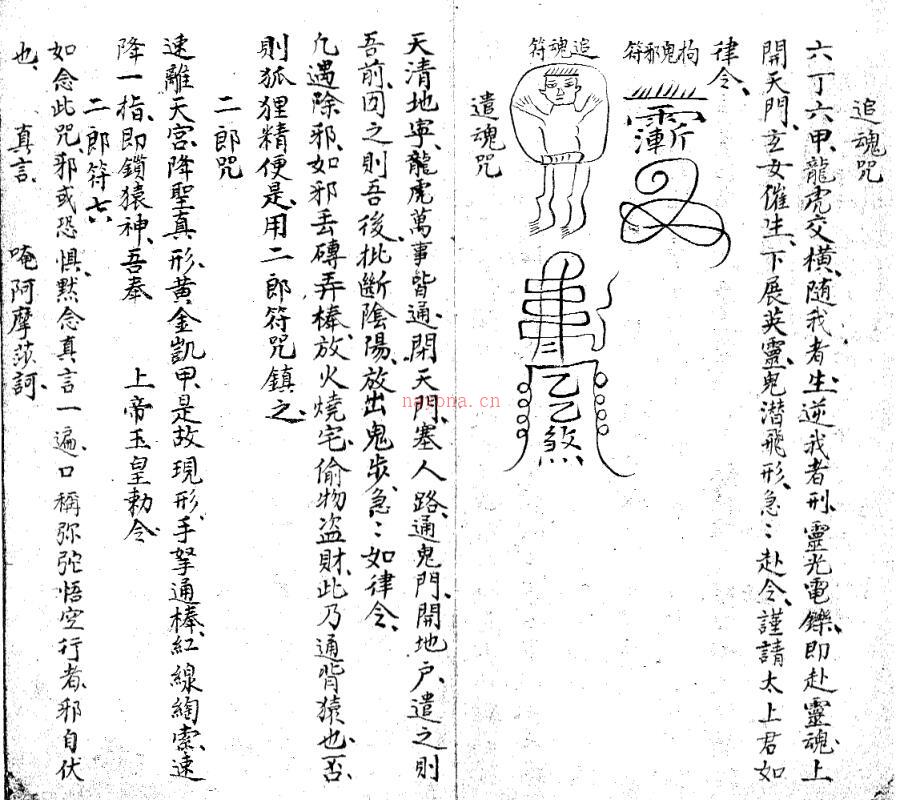 追魂咒
六丁六甲、龍虎交橫、隨我者生、逆我者刑、靈光電鑠、即赴靈魂、上
開天門、玄女催生、下展英靈、鬼潛飛形、急〻赴令、謹請太上君如
律令、
拘鬼邪符
追魂符
遣魂咒
天清地寧、龍虎萬事皆通、閉天門、塞人路、通鬼門、開地户、遣之則
吾前、回之則吾後、批斷陰陽、放出鬼步、急〻如律令、
凢遇除邪、如邪丢磚弄棒、放火燒宅、偷物盗財、此乃通背猿也、否
則狐狸精便是、用二郎符咒鎮之、
二郎咒
速離天宮、降聖真形、黄金凱甲、是故現形、手拏通棒、紅線綯索、速
降一指、即鎖猿神、吾奉 上帝玉皇勅令
二郎符七六
如念此咒、邪或恐惧、黙念真言一遍、口稱弥陀悟空行者、邪自伏
也、 真言、 唵阿摩莎訶、
nayona.cn